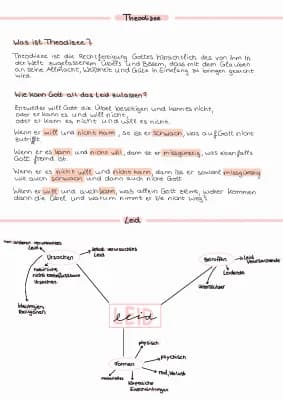 Theodizee
Was ist Theodizee?
Theodizee ist die Rechtfertigung Gottes hinsichtlich des von ihm in
der Welt zugelassenen Übels und Bösen, dass mit dem Glauben
an seine Allmacht, Weisheit und Güte in Einklang zu bringen gesucht
wird.
Wie kann Gott all das Leid zulassen?
Entweder will Gott die Übel beseitigen und kann es nicht,
oder er kann es und will nicht,
oder er kann es nicht und will es nicht.
Wenn er will und nicht kann, so ist er schwach, was auf Gott nicht
zutrifft.
Wenn er es kann und nicht will, dann ist er missgünstig, was ebenfalls
Gott fremd ist.
Wenn er es nicht will und nicht kann, dann ist er sowohl missgünstig
wie auch schwach und dann auch nicht Gott.
Wenn er will und auch kann, was allein Gott ziemt, woher kommen
dann die Übel und warum nimmt er sie nicht weg?
Leid
von anderen verursachtes
Leid
Ursachen
selbst verursachtes
Leid
natürliche,
nicht beeinflussbare
Ursachen
Ideologien
Religionen
Betroffen
Leid
Verursachende
Leidende
LEID
leid
Formen
physisch
psychisch
Tod, Verlust
körperliche
Einschränkungen
materielles